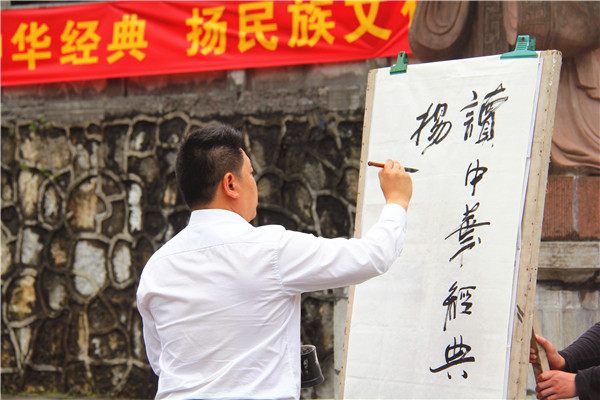 中华经典 扬民族文
讀中華經典
揚